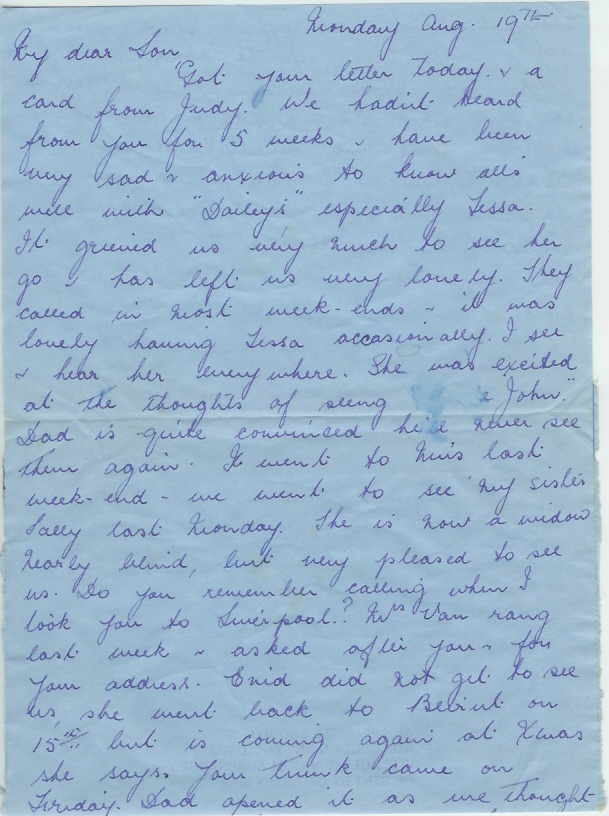 Monday Aug. 19TH
My dear Son
Got your letter today. & a
card from Judy. We hadn't heard
from you for 5 weeks & have been
very sad & anxious to know all's
well with "Dailey's" especially Tessa.
It grieved us very much to see her
go & has left us very lonely. They
called in most week-ends & it was
lovely having Tessa occasionally. I see
& hear her everywhere. She was excited
at the thoughts of seeing John".
Dad is quite convinced he'll never see
them again. I went to last
week-end - we went to see my sister
Sally last Monday. She is now a widow
nearly blind, but very pleased to see
us. Do you remember calling when I
took you to Liverpool.? Mrs Van rang
last week & asked after you & for
your address. Enid did not get to see
us, she went back to Beirut on
15th but is coming again at Xmas
she says. Your trunk came on
Friday. Dad opened it as we thought